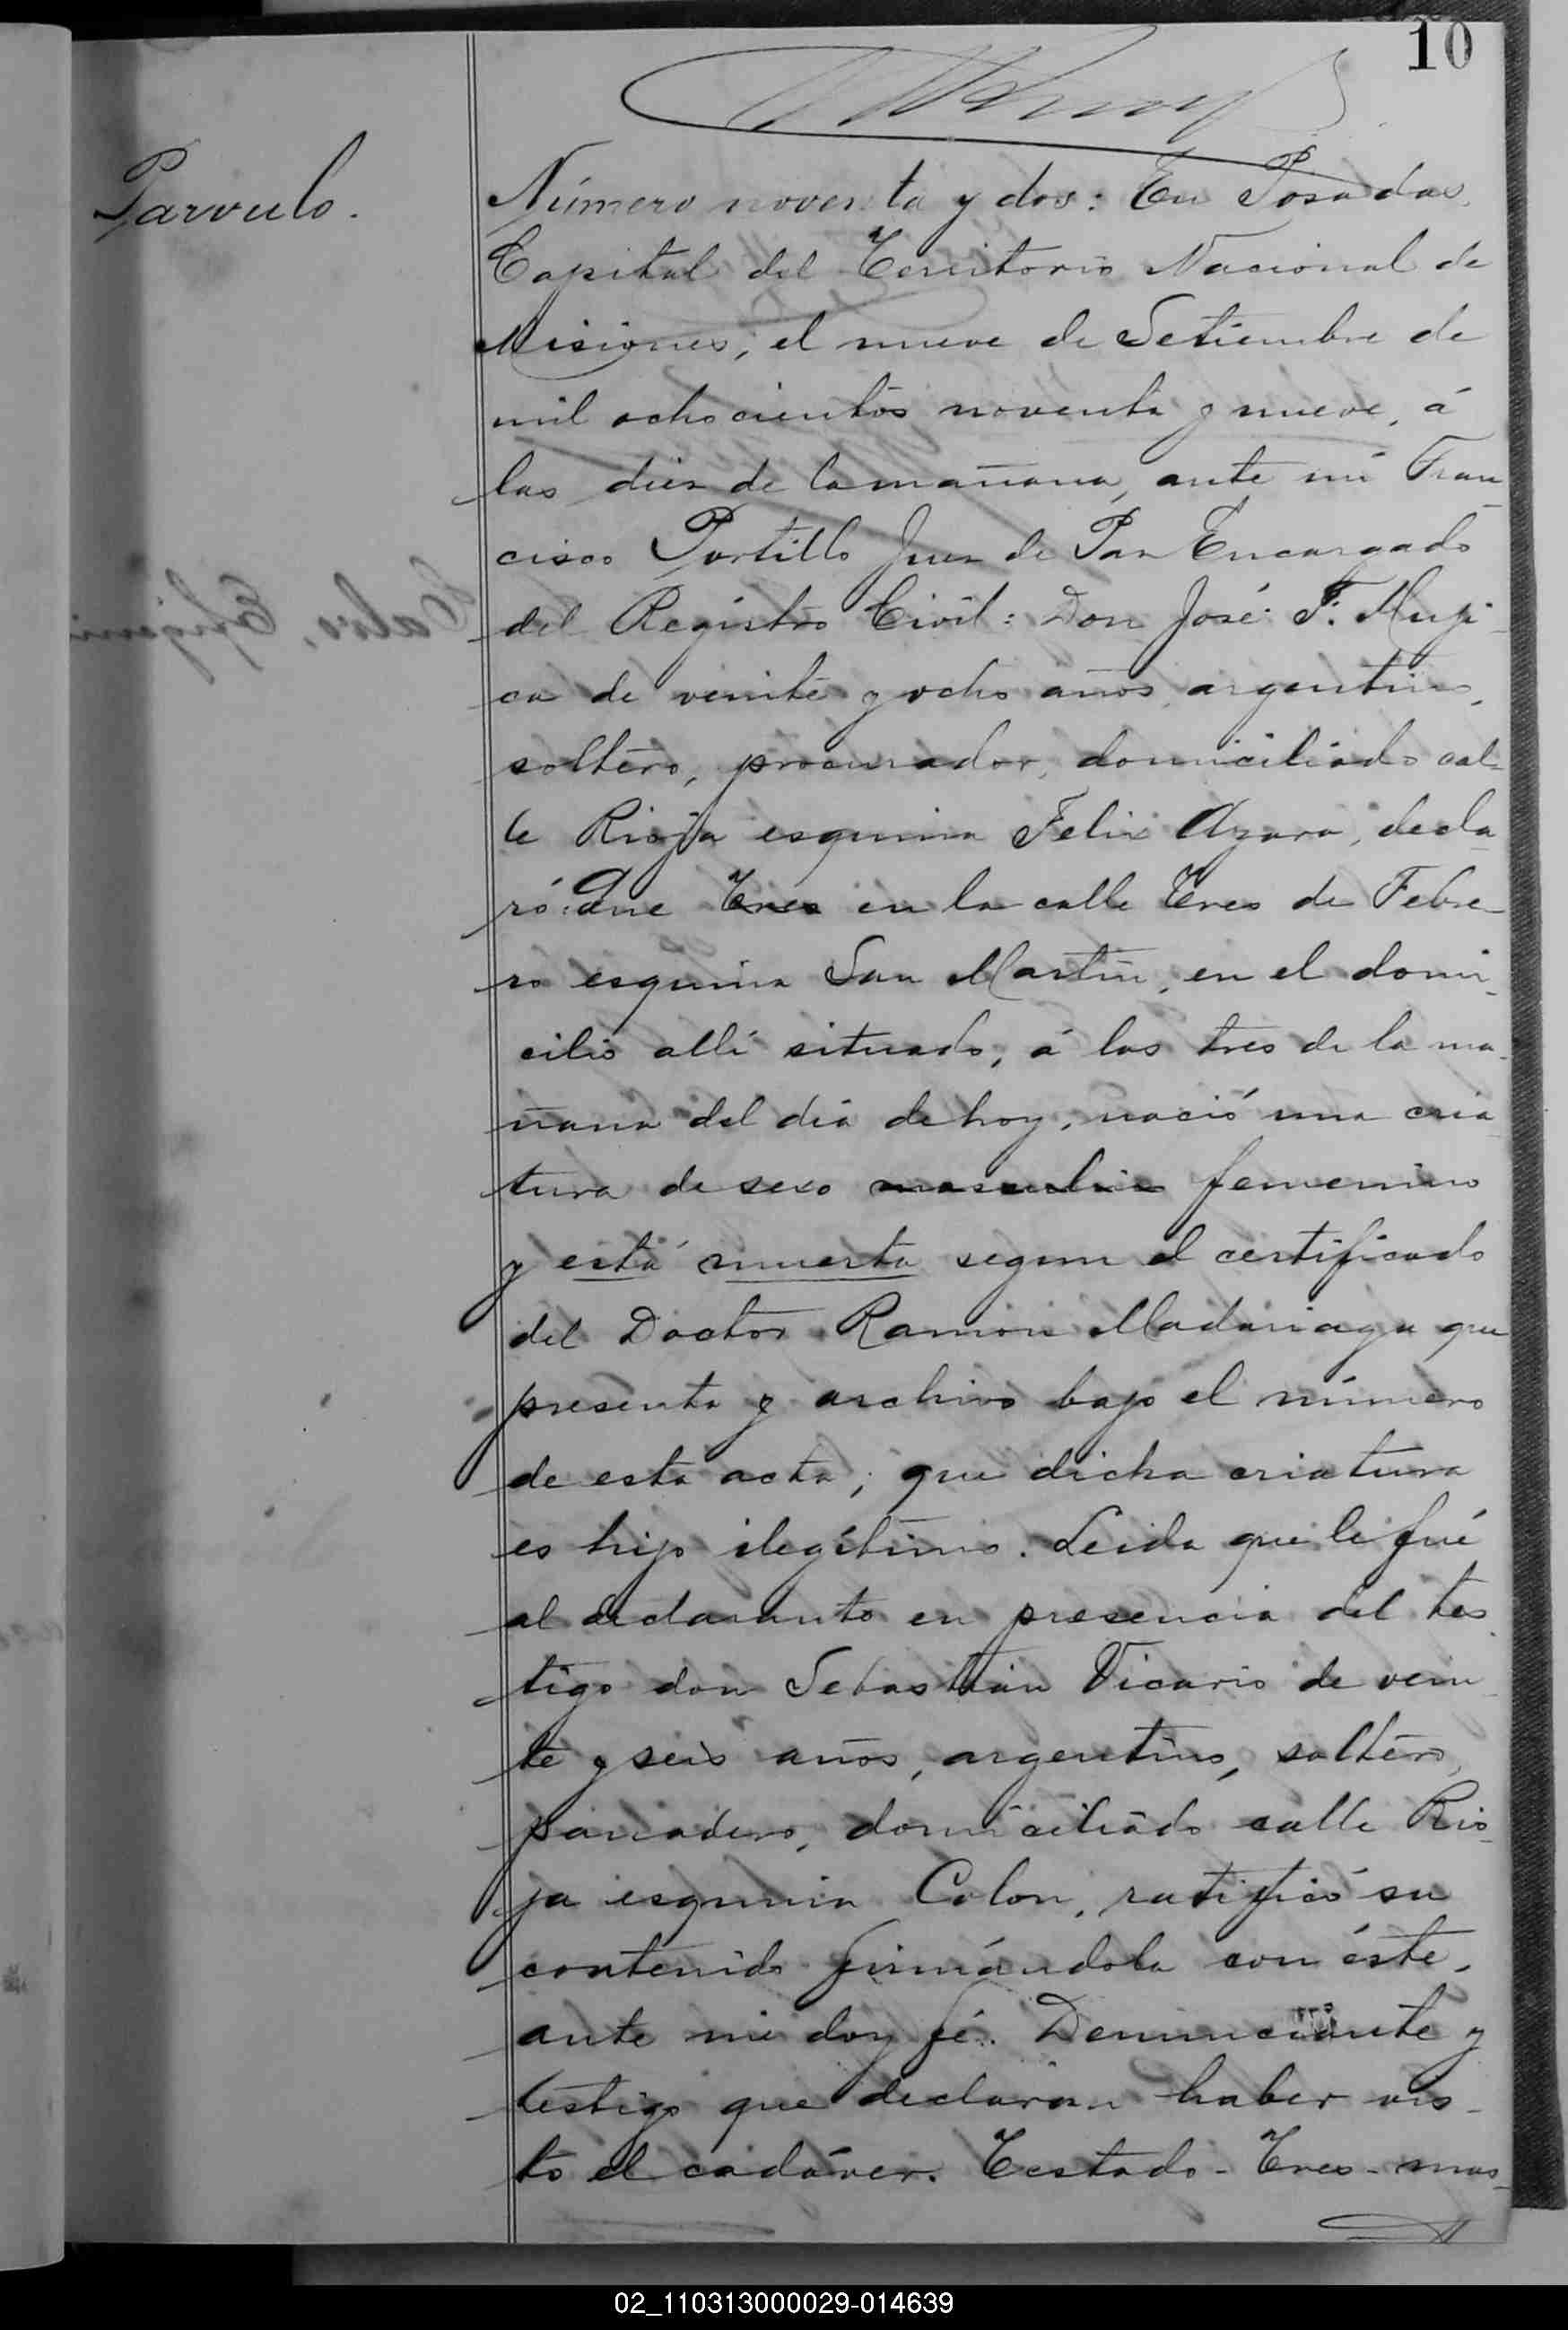 10
Parvulo.
Número noventa y dos: En Posadas,
Capital del Territorio Nacional de
Misiones, el nueve de Setiembre de
mil ochocientos noventa y nueve, á
las diez de la mañana, ante mí Fran
cisco Portillo Juez de Paz Encargado
del Registro Civil: Don José F. Muji-
ca de veinte y ocho años, argentino,
soltero, procurador, domiciliado cal-
le Rioja esquina Felix Azara, decla-
ró: Que Tres en la calle Tres de Febre-
ro esquina San Martin, en el domi-
cilio allí situado, á las tres de la ma-
ñana del día de hoy, nació una cria
tura de sexo masculino femenino
y está muerta segun el certificado
del Doctor Ramón Madariaga que
presenta y archivo bajo el número
de esta acta; que dicha criatura
es hijo ilegítimo. Leida que le fué
al declarante en presencia del tes-
tigo don Sebastian Vicario de vein-
te y seis años, argentino, soltero,
panadero, domiciliado calle Rio-
ja esquina Colon, ratificó su
contenido firmándola con éste,
ante mi doy fé. Denunciante y
testigo que declaran haber vis-
to el cadáver. Testado - Tres - mas-
02_110313000029-014639